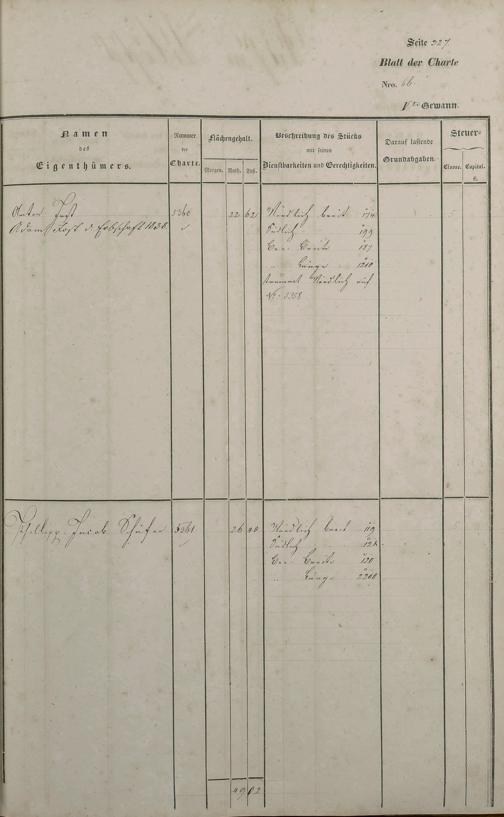 Seite 327.
Blatt der Charte
Nro. 66
Vte Gewann.
Namen
des
Eigenthümers.
Nummer
der
Charte.
Flächengehalt.
Morgen. Ruth. Fuß.
Beschreibung des Stücks
mit seinen
Dienstbarkeiten und Gerechtigkeiten.
Darauf lastende
Grundabgaben.
Steuer-
Classe. Capital.
fl.
Anton Jost 5360 22 62 Nördlich breit
Adam Jost d. Erbschaft 1838. Südlich 199
Ger. Breite 187
" Länge 1210
Nördlich auf
Philipp Jacob Schäfer 5361 26 40 Nördlich breit 119
Südlich
Ger. Breite 120
" Länge 2200
49 02